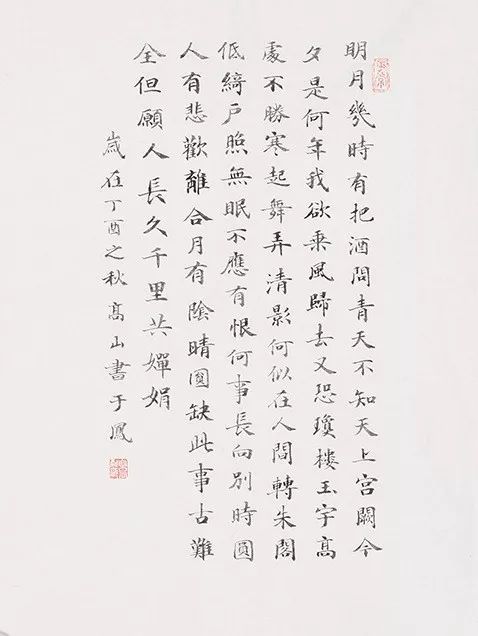 明月幾時有把酒問青天不知天上宮闕今
夕是何年我欲乘風歸去又恐瓊樓玉宇高
處不勝寒起舞弄清影何似在人間轉朱閣
低綺戶照無眠不應有恨何事長向別時圓
人有悲歡離合月有陰晴圓缺此事古難
全但願人長久千里共嬋娟
歲在丁酉之秋高山書于鳳